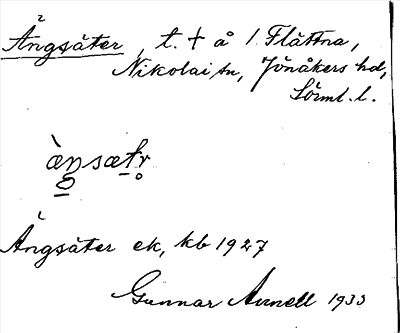 Ängsäter, t. + å 1. Flättna,
Nikolai sn, Jönåkers hd,
Sörml. l.
ànsætr
Ängsäter ek, kb 1927
Gunnar Armell 1933